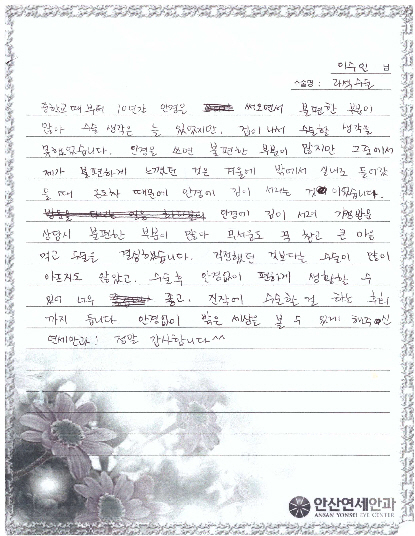 이수인 님
수술명 : 라식수술
중학교 때부터 10년간 안경을 써오면서 불편한 부분이
많아 수술 생각은 늘 있었지만, 겁이 나서 수술할 생각을
못했었습니다. 안경을 쓰면 불편한 부분이 많지만 그중에서
제가 불편하게 느꼈던 것은 겨울에 밖에서 실내로 들어갔
을 때 온도차 때문에 안경에 김이 서리는 것 이었습니다.
안경에 김이 서려
상당히 불편한 부분이 많아 무서움도 꾹 참고 큰 마음
먹고 수술을 결심했습니다. 걱정했던 것보다는 수술이 많이
아프지도 않았고, 수술후 안경없이 편하게 생활할 수
있어 너무 좋고, 진작에 수술할걸 하는 후회
까지 듭니다 안경없이 밝은 세상을 볼 수 있게 해주신
연세안과! 정말 감사합니다^^
안산연세안과
ANSAN YONSEI EYE CENTER